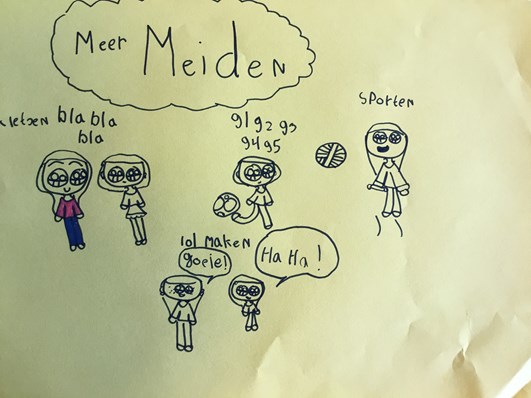 Meer Meiden
kletsen bla bla
bla
91 92 93
94 95
Sporten
lol maken
goeie!
Ha Ha!